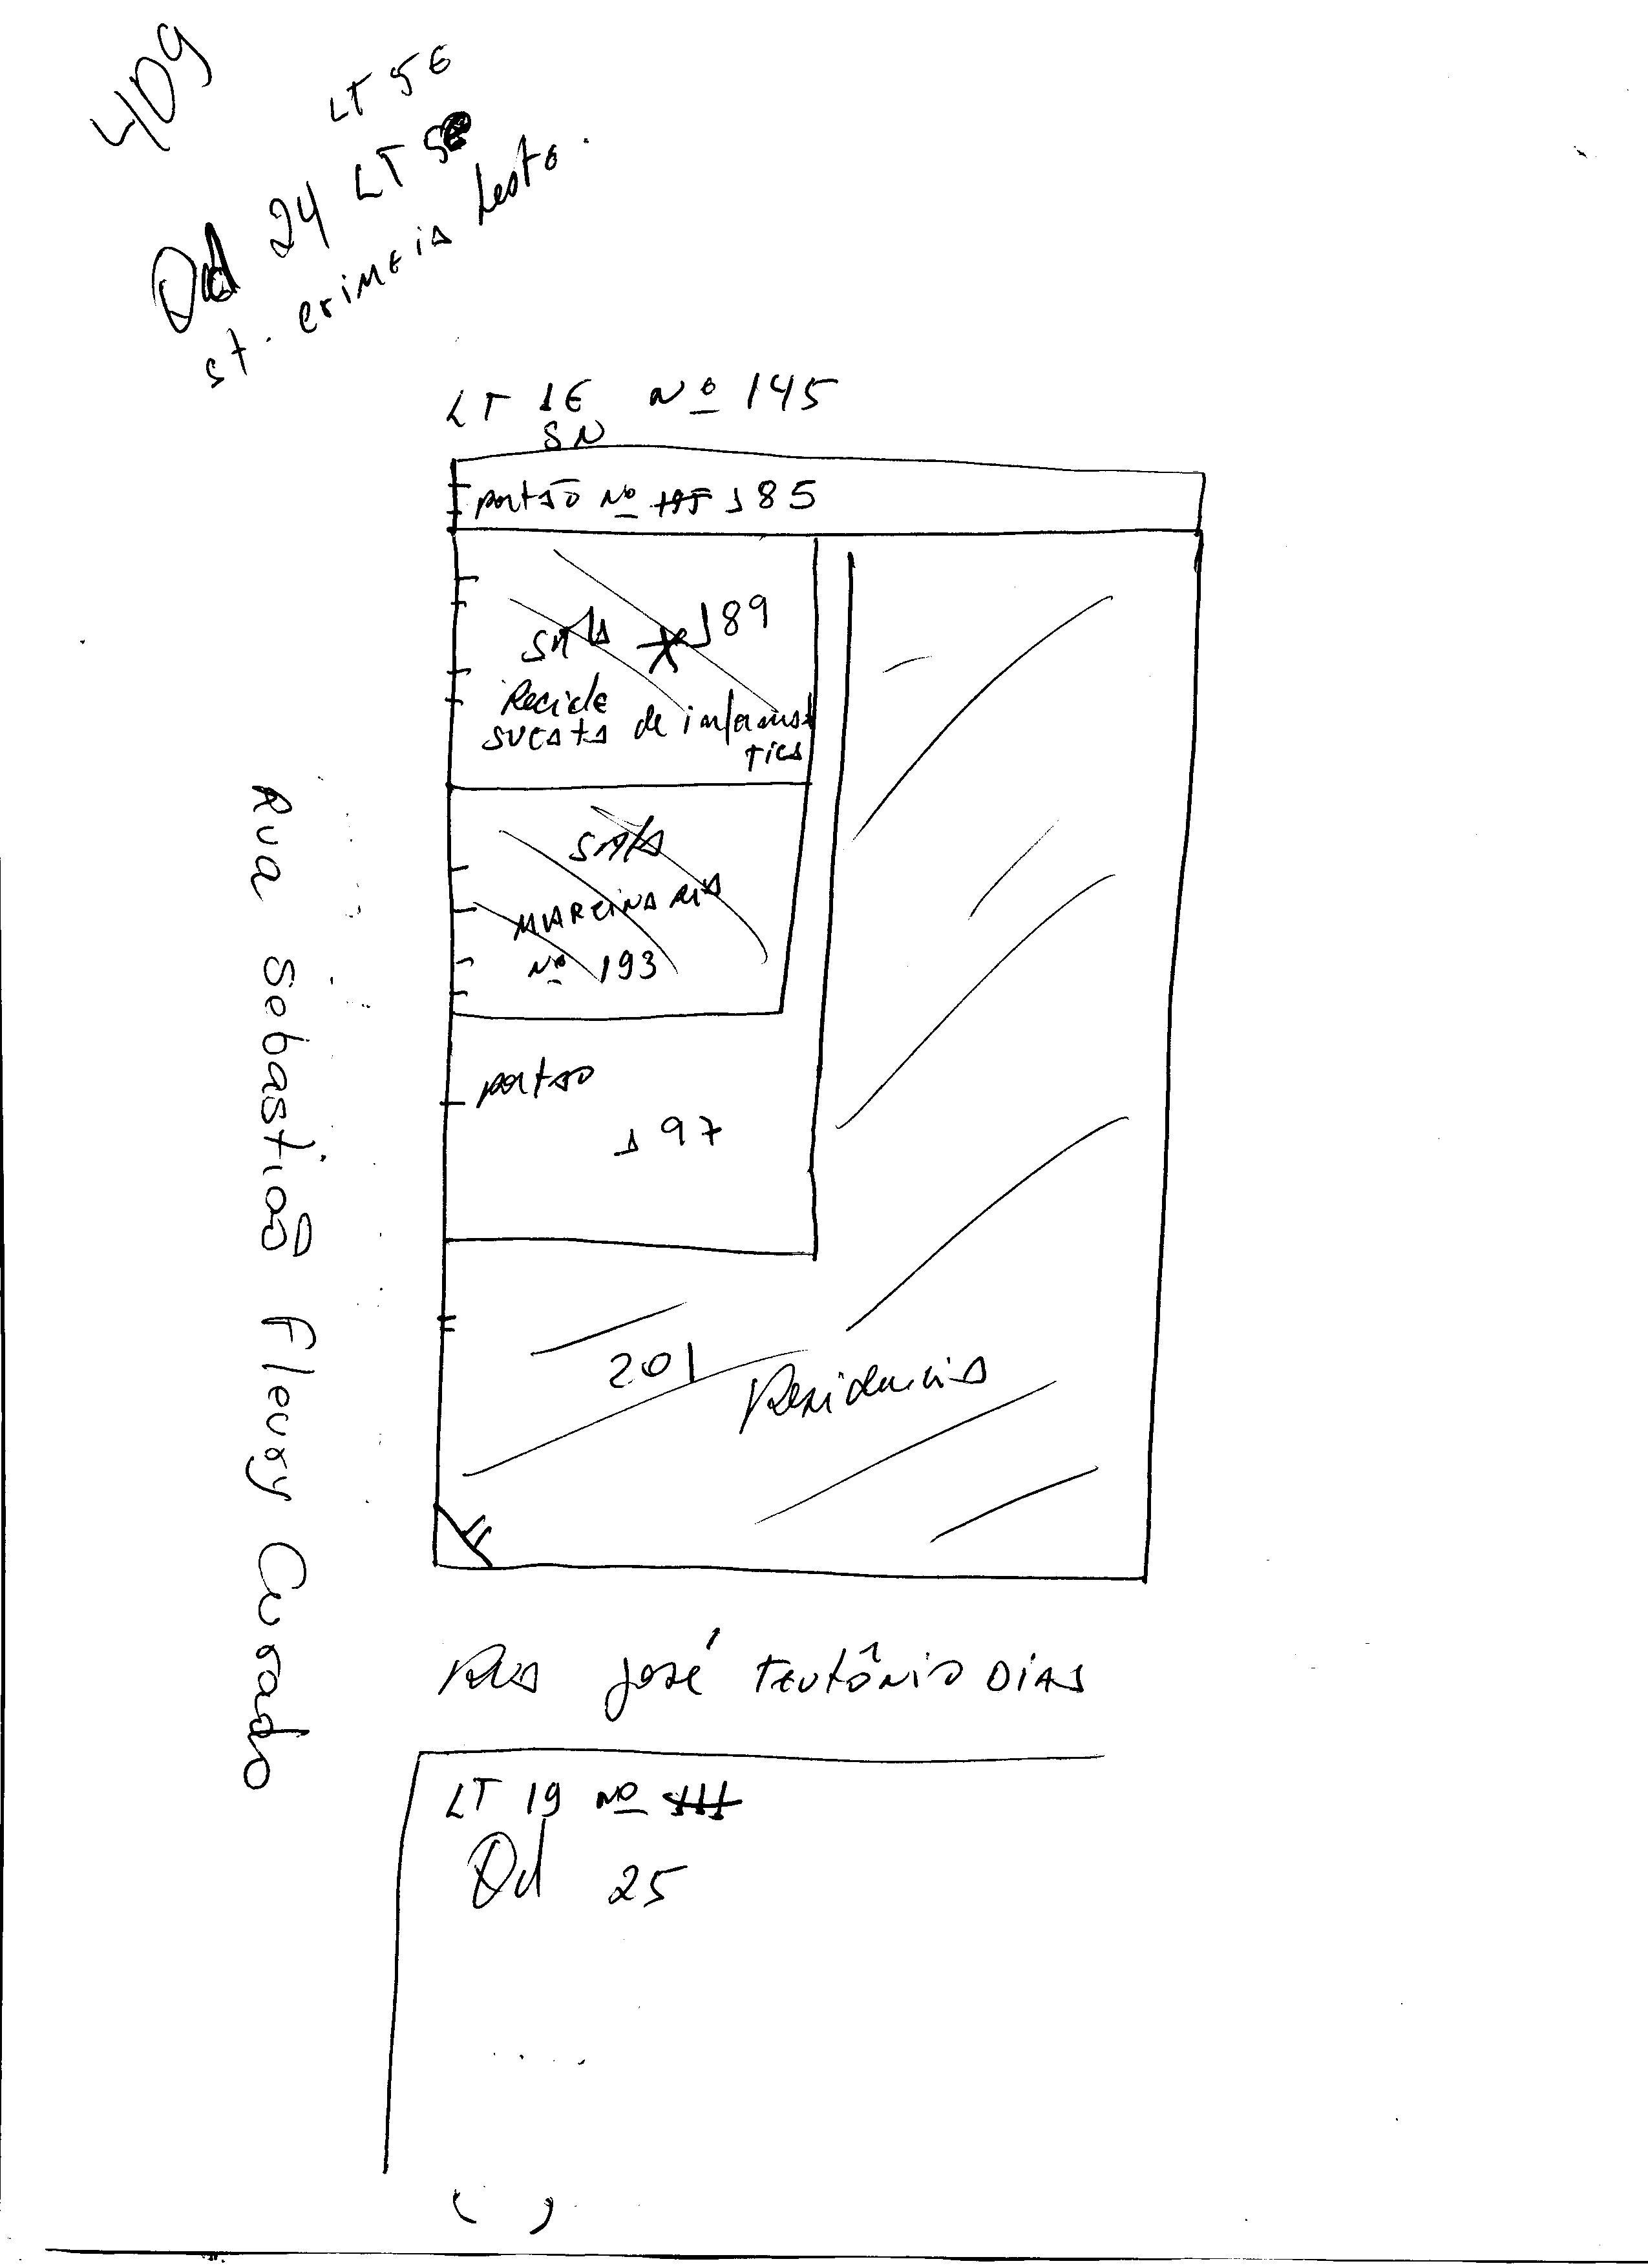 409
LT 5E
Qd 24 LT 5E
st. crimeia Leste.
LT 1E Nº 145
SN
portão Nº 185
SALA 189
Recicle
sucata de informá
tica
SALA
MARCINARIA
Nº 193
portão
197
201 Residencia
Rua Sebastião Fleury Curado
Rua José TEUTÔNIO DIAS
LT 19 Nº
Qd 25